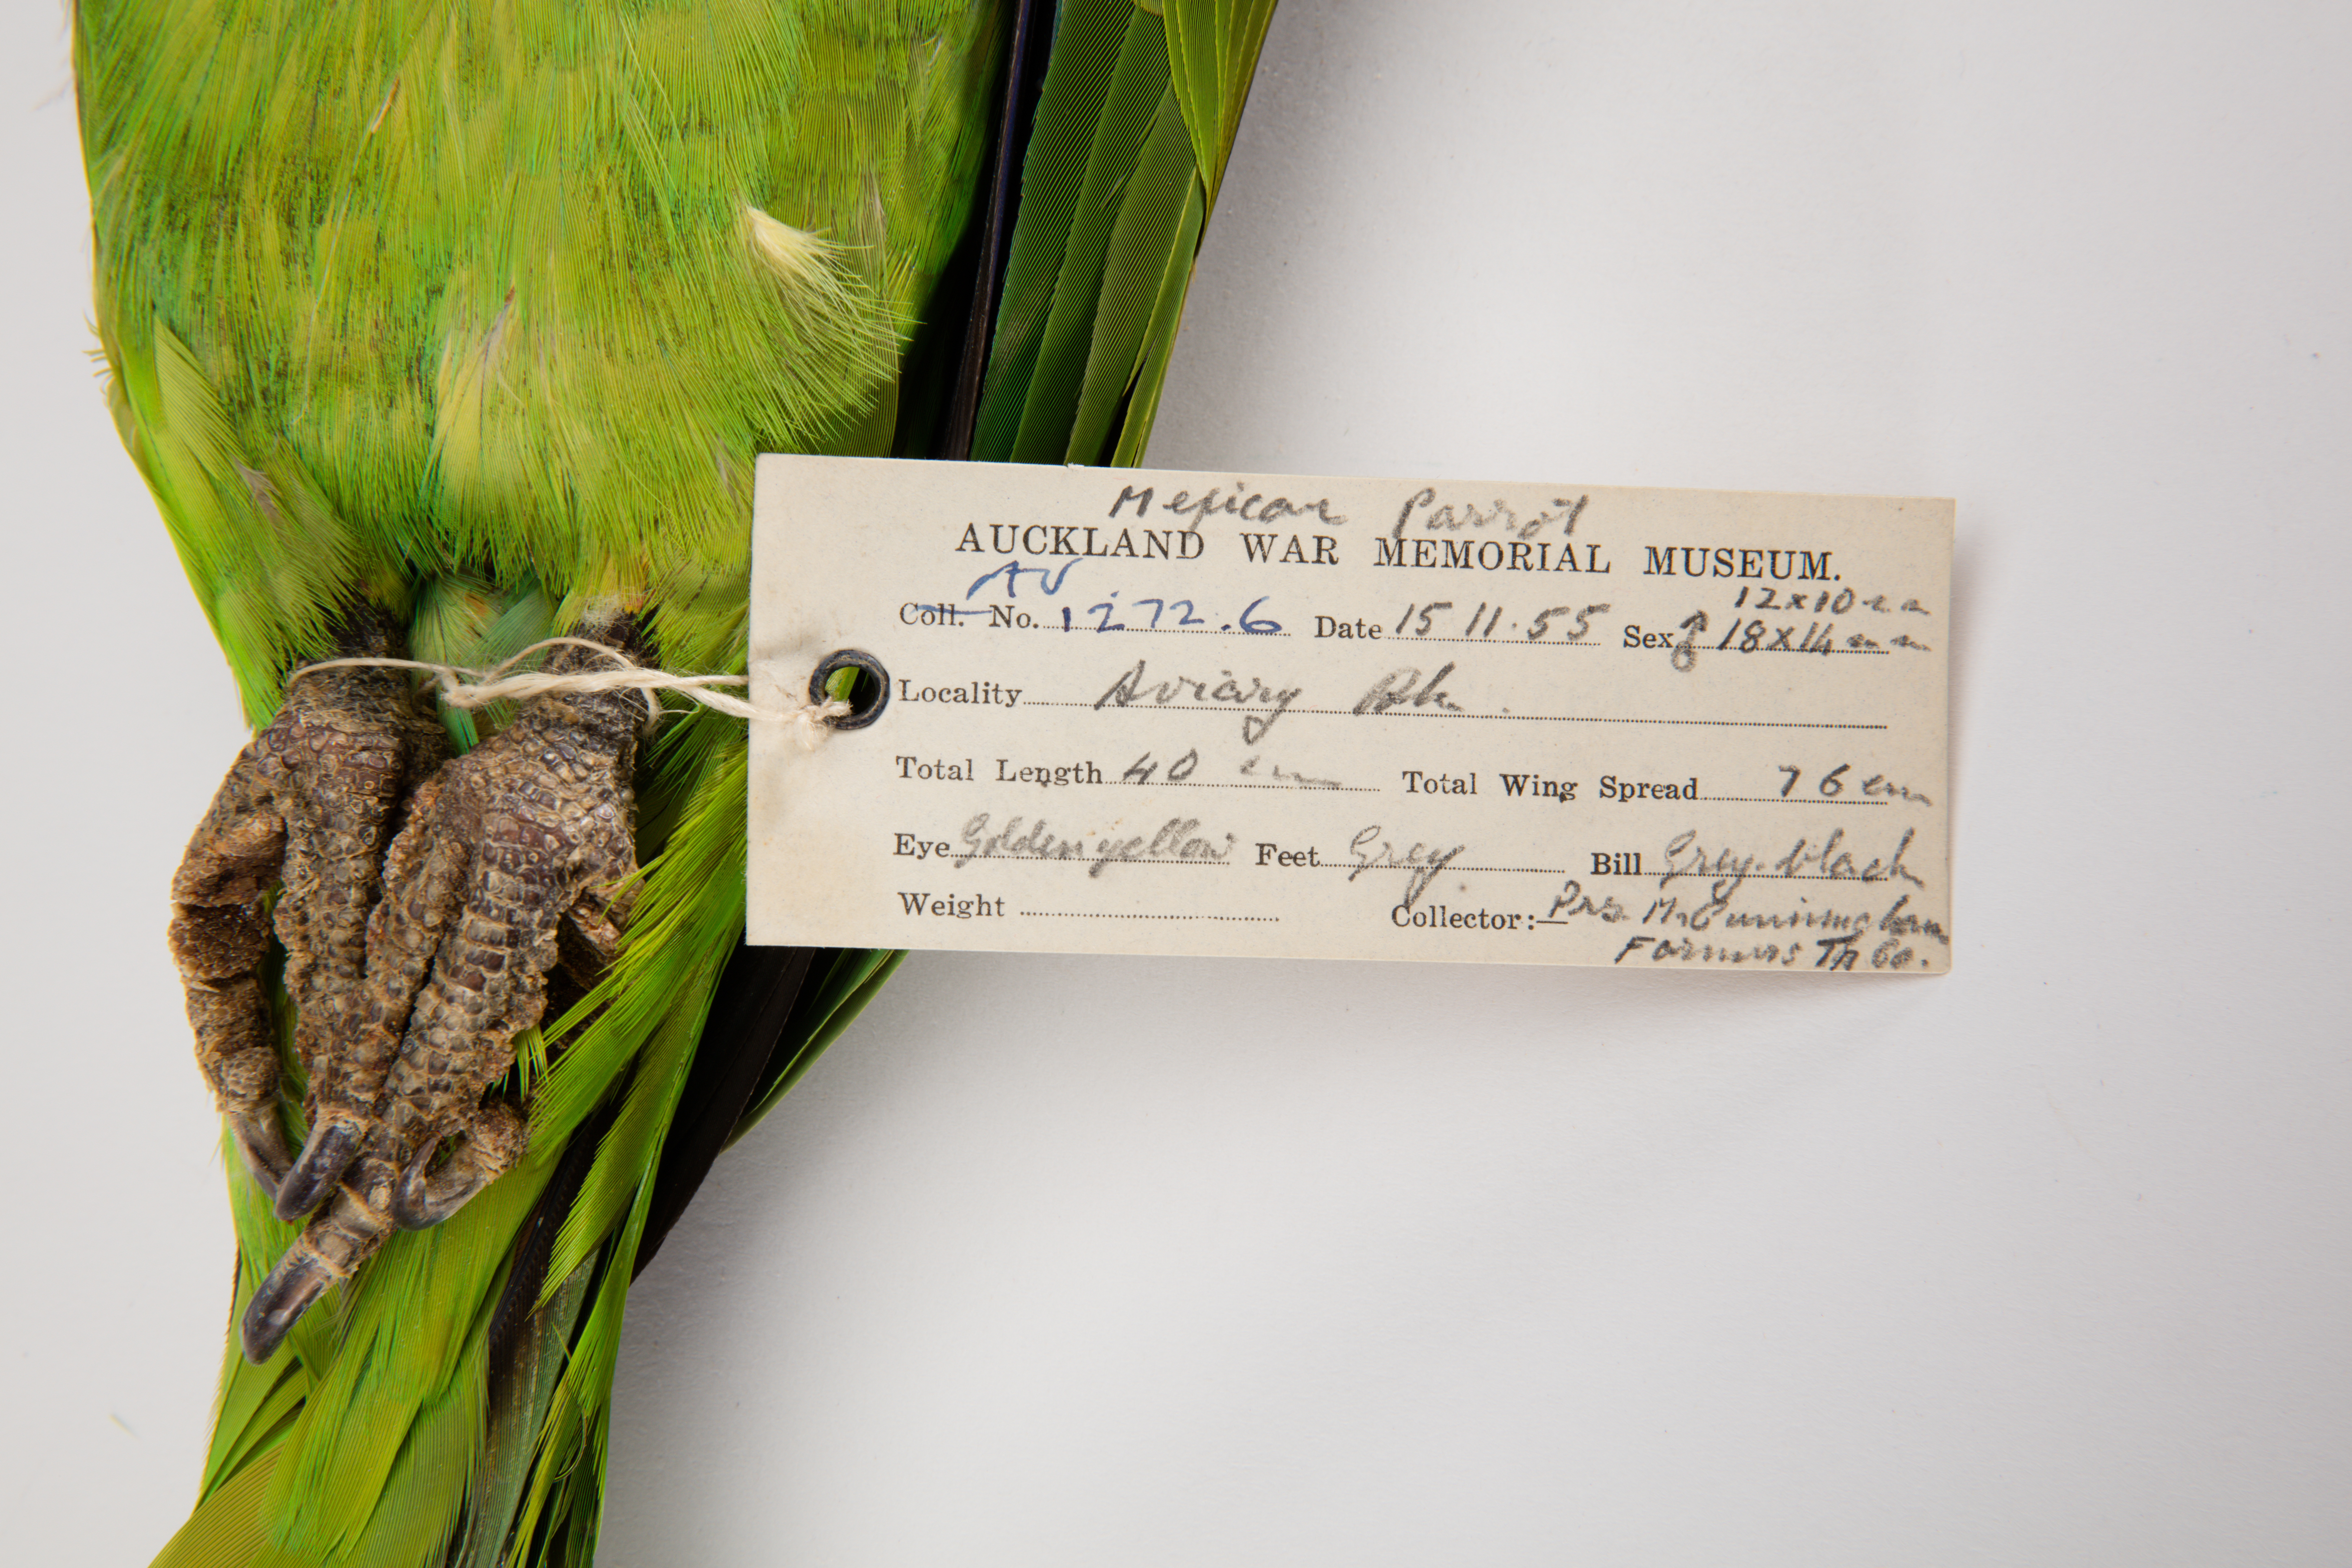 Mexican Parrot
AUCKLAND WAR MEMORIAL MUSEUM.
AV
12x10 mm
Coll. No. 1272.6 Date 15 11.55 Sex ♂ 18x14 mm
Locality Aviary Ak.
Total Length 40 cm Total Wing Spread 76 cm
Eye Golden yellow Feet Grey Bill Grey-black
Weight Collector:— Cunningham
Farmers Co.